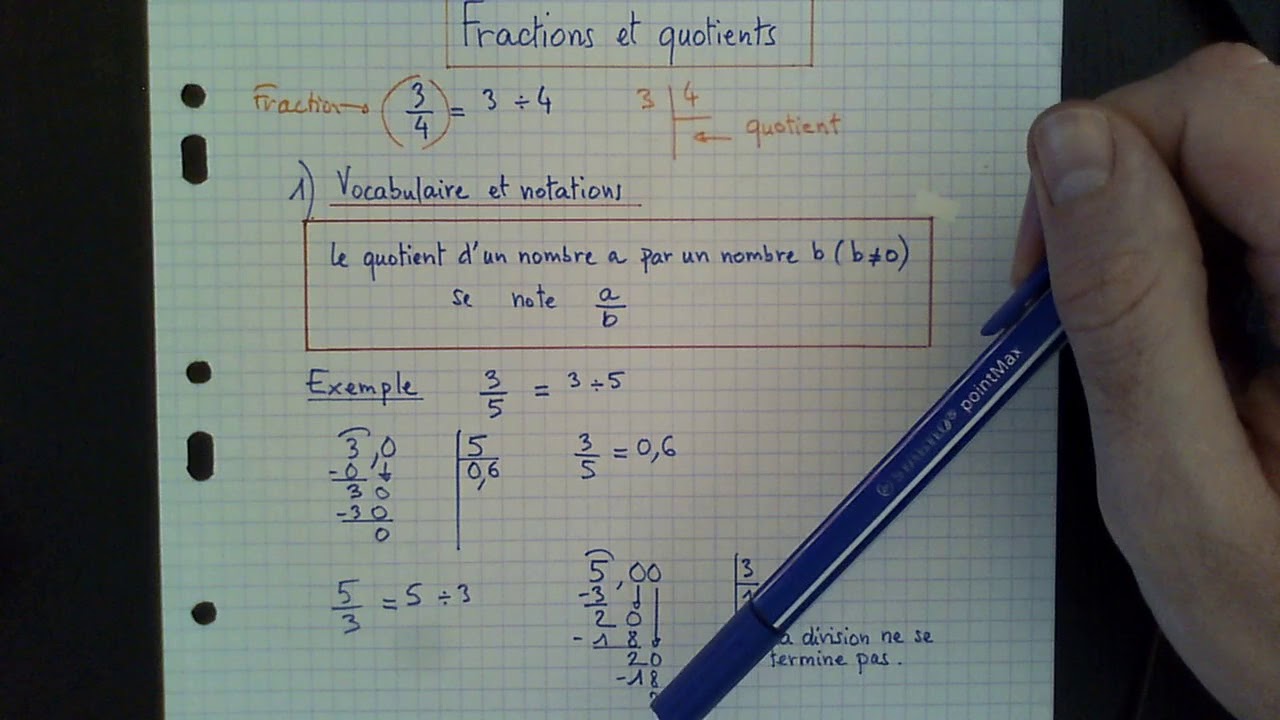 Fractions et quotients
Fraction → 3/4 = 3 ÷ 4
3 | 4
← quotient
1) Vocabulaire et notations
le quotient d'un nombre a par un nombre b (b≠0)
se note a/b
Exemple 3/5 = 3 ÷ 5
3,0 | 5
-0 | 0,6
30
-30
0
3/5 = 0,6
5/3 = 5 ÷ 3
5,00 | 3
-3
20
-18
20
-18
division ne se
termine pas.
STABILO pointMax